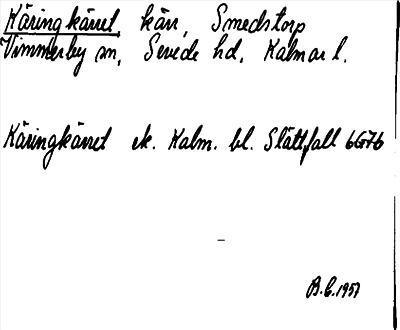 Käringkärret, kärr, Smedstorp
Vimmerby sn, Sevede hd, Kalmar l.
Käringkärret ek. Kalm. bl. Slättfall 6G7b
B.C. 1957